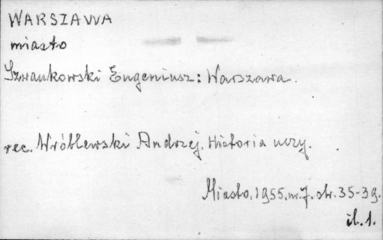 WARSZAWA
miasto
Szwankowski Eugeniusz: Warszawa.
rec. Wróblewski Andrzej. Historia uczy.
Miasto, 1955. nr. 7. str. 35-39.
il. 1.